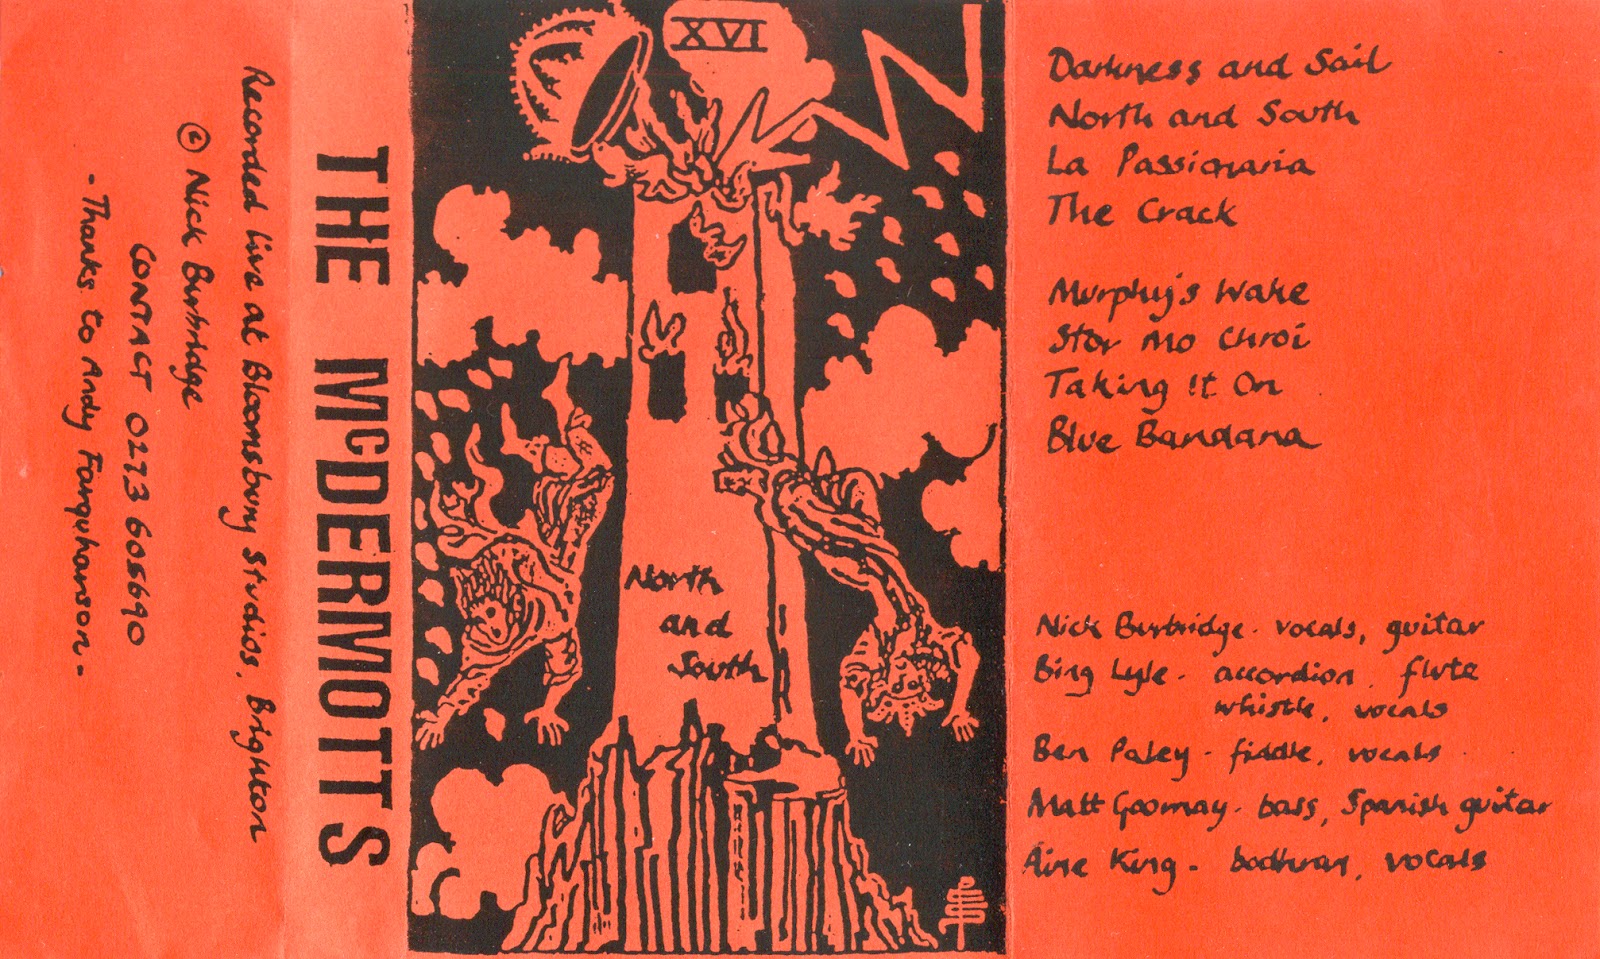 Recorded live at Bloomsbury Studios, Brighton
© Nick Burbridge
CONTACT 0273 605690
- Thanks to Andy Farquharson -
THE McDERMOTTS
XVI
North
and
South
Darkness and Sail
North and South
La Passionaria
The Crack
Murphy's Wake
Stor Mo Chroi
Taking It On
Blue Bandana
Nick Burbridge - vocals, guitar
Bing Lyle - accordion, flute
whistle, vocals
Ben Paley - fiddle, vocals
Matt Goomay - bass, Spanish guitar
Áine King - bodhran, vocals